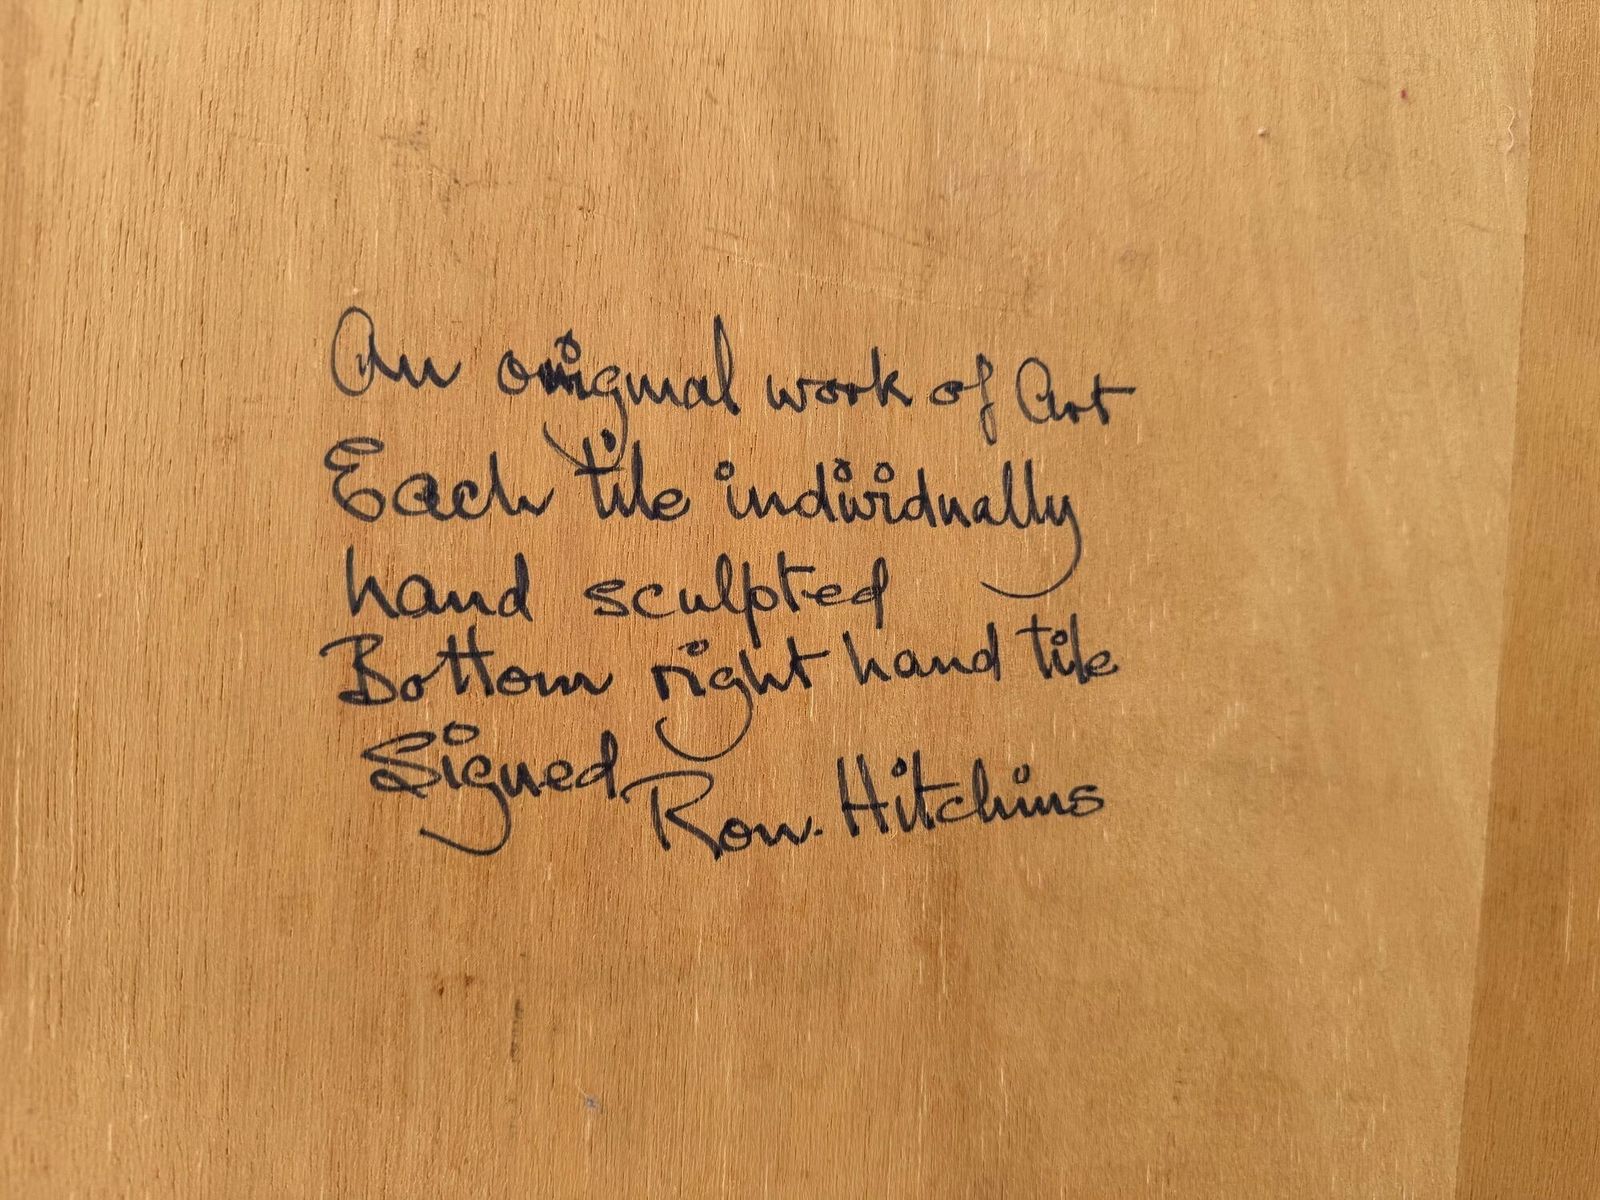 An original work of Art
Each tile individually
hand sculpted
Bottom right hand tile
Signed Ron. Hitchins